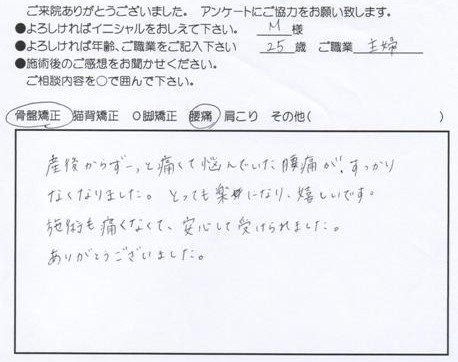 ご来院ありがとうございました。 アンケートにご協力をお願い致します。
●よろしければイニシャルをおしえて下さい。 M 様
●よろしければ年齢、ご職業をご記入下さい 25 歳 ご職業 主婦
●施術後のご感想をお聞かせください。
ご相談内容を○で囲んで下さい。
骨盤矯正 猫背矯正 O脚矯正 腰痛 肩こり その他( )
産後からずーっと痛くて悩んでいた腰痛が、すっかり
なくなりました。とっても楽になり、嬉しいです。
施術も痛くなくて、安心して受けられました。
ありがとうございました。